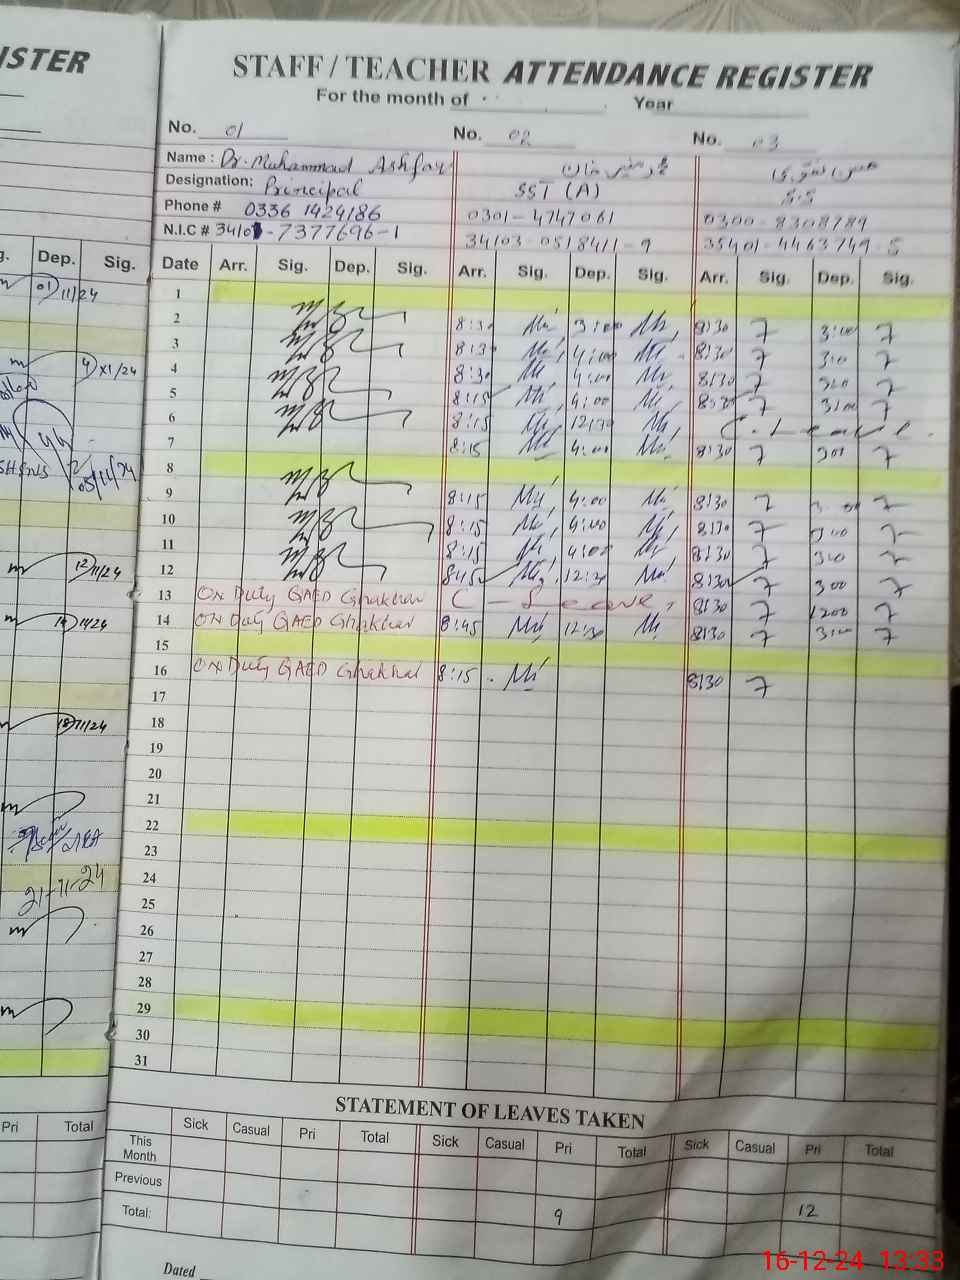 ISTER
STAFF / TEACHER ATTENDANCE REGISTER
For the month of Year
No. 01 No. 02 No. 03
Name : Dr. Muhammad Ashfaq
Designation: Principal SST (A) S.S
Phone # 0336 1424186 0301-4747061 0300-8308789
N.I.C # 34101-7377696-1 34103-0518411-9 35401-4463749-5
g. Dep. Sig. Date Arr. Sig. Dep. Sig. Arr. Sig. Dep. Sig. Arr. Sig. Dep. Sig.
01/11/24
1
2 8:30 3:00 8:30 3:00
3 8:30 4:00 8:30 3:0
4 8:30 4:00 8:30 300
5 8:15 4:00 8:30 3:00
6 8:15 12:30 C. Leave.
7 8:15 4:00 8:30 300
8
9 8:15 4:00 8:30
10 8:15 4:00 8:30 300
11 8:15 4:00 8:30 300
12 8:15 12:30 8:30 300
13 On Duty QAED Ghakhar C - Leave, 8:30 1200
14 On Duty QAED Ghakhar 8:45 12:30 8:30 3:00
15
16 On Duty QAED Ghakhar 8:15 8:30
17
18
19
20
21
22
23
24
25
26
27
28
29
30
31
12/11/24
18/11/24
21-11-24
STATEMENT OF LEAVES TAKEN
Pri Total Sick Casual Pri Total Sick Casual Pri Total Sick Casual Pri Total
This Month
Previous
Total: 9 12
Dated
16-12-24 13:33